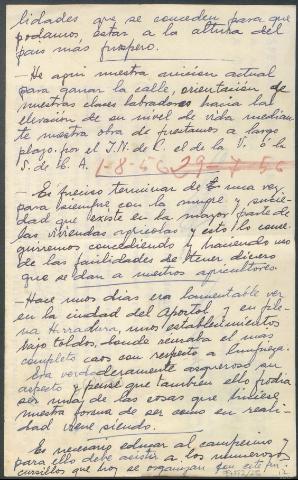 lidades que se conceden para que
podamos, estar a la altura del
pais más próspero.
- He aqui nuestra mision actual
para ganar la calle, orientacion de
nuestras clases labradoras hacia la
elevación de su nivel de vida median
te nuestra obra de prestamos a largo
plazo. por el I.N. de C. el de la V. ó la
S. de H. A. 1-8-56 29-7-56
- Es preciso terminar de una vez
para siempre con la mugre y sucie
dad que existe en la mayor parte de
las viviendas agricolas y esto lo conse
guiremos concediendo y haciendo uso
de las facilidades de tener dinero
que se dan a nuestros agricultores.
- Hace unos dias era lamentable ver
en la ciudad del Apostol y en ple
na Herradura, unos establecimientos
bajo toldos, donde reinaba el mas
completo caos con respecto a limpieza.
Era verdaderamente asqueroso su
aspecto y pensé que tambien ello podria
ser una, de las cosas que hiciese
nuestra forma de ser como en reali-
dad viene siendo.
Es necesario educar al campesino y
para ello debe asistir a los numerosos
cursillos que hoy se organizan con este fin.